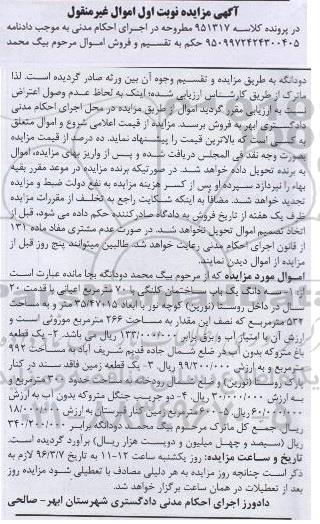 آگهی مزایده نوبت اول اموال غیرمنقول
در پرونده کلاسه ۹۵۱۳۱۷ مطروحه در اجرای احکام مدنی به موجب دادنامه
۹۵۰۹۹۷۲۴۲۴۳۰۰۴۰۵ حکم به تقسیم و فروش اموال مرحوم بیگ محمد
دودانگه به طریق مزایده و تقسیم وجوه آن بین ورثه صادر گردیده است. لذا
ماترک از طریق کارشناس ارزیابی شده؛ اینک به لحاظ عدم وصول اعتراض
نسبت به ارزیابی مقرر گردید اموال از طریق مزایده در محل اجرای احکام مدنی
دادگستری ابهر به فروش برسد. مزایده از قیمت اعلامی شروع و اموال متعلق
به کسی است که بالاترین قیمت را پیشنهاد نماید. ده درصد از قیمت مزایده
بصورت وجه نقد فی المجلس دریافت شده و پس از واریز بهای مزایده، اموال
به برنده تحویل داده خواهد شد. در صورتیکه برنده مزایده در موعد مقرر بقیه
بهاء را نپردازد سپرده او پس از کسر هزینه مزایده به نفع دولت ضبط و مزایده
تجدید خواهد شد. مضافا به اینکه شکایت راجع به تخلف از مقررات مزایده
ظرف یک هفته از تاریخ فروش به دادگاه صادرکننده حکم داده می شود، قبل از
اتخاذ تصمیم اموال تحویل نخواهد شد. در صورت عدم مشتری مفاد ماده ۱۳۱
از قانون اجرای احکام مدنی رعایت خواهد شد. طالبین میتوانند پنج روز قبل از
مزایده از اموال دیدن نمایند.
اموال مورد مزایده که از مرحوم بیگ محمد دودانگه بجا مانده عبارت است
از: ۱- سه دانگ یک باب ساختمان کلنگی با ۷۰ مترمربع اعیانی با قدمت ۲۰
سال در داخل روستا (نورین) کوچه نور با ابعاد ۳۵/۴۷۰۱۵ متر و به مساحت
۵۳۲ مترمربع که نصف این مقدار به مساحت ۲۶۶ مترمربع موروثی است و
ارزش آن با امتیاز آب و برق برابر ۱۳۳/۰۰۰/۰۰۰ ریال می باشد. ۲- یک قطعه
باغ متروکه بدون آب در ضلع شمال جاده قدیم شریف آباد به مساحت ۹۹۲
مترمربع و به ارزش ۹۹/۲۰۰/۰۰۰ ریال. ۳- یک قطعه زمین فاقد سند در کنار
پارک روستا (نورین) و ضلع شمال رودخانه به مساحت حدود ۳۰۰ مترمربع و
به ارزش ۳۰/۰۰۰/۰۰۰ ریال. ۴- دو جریب جنگل متروکه بدون آب به ارزش
۶۰/۰۰۰/۰۰۰ ریال. ۵- ۶۰۰ مترمربع زمین کنار قبرستان به ارزش ۱۸/۰۰۰/۰۰۰
ریال. جمع کل ماترک مرحوم بیگ محمد دودانگه برابر ۳۴۰/۲۰۰/۰۰۰
ریال (سیصد و چهل میلیون و دویست هزار ریال) برآورد گردیده است.
تاریخ و ساعت مزایده: روز یکشنبه ساعت ۱۲-۱۱ به تاریخ ۹۶/۳/۷ لازم به
ذکر است چنانچه روز مزایده به هر دلیلی مصادف با تعطیلی شود مزایده روز
بعد از تعطیلات در همان ساعت برگزار خواهد شد.
دادورز اجرای احکام مدنی دادگستری شهرستان ابهر- صالحی